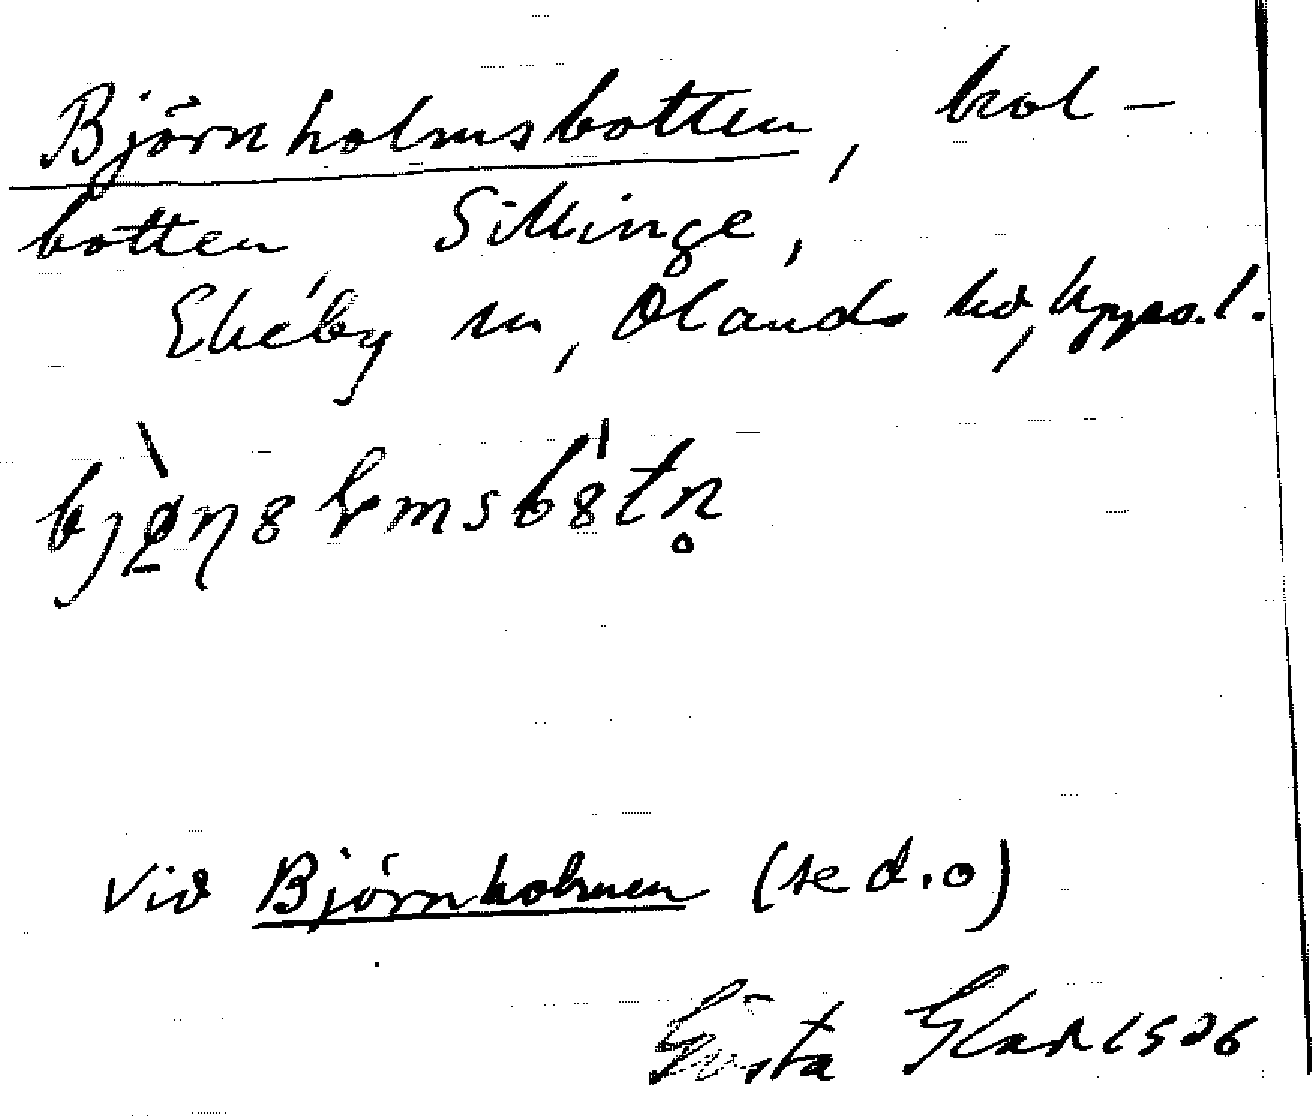 Björnholmsbotten, kol-
botten Sillinge,
Ekeby sn, Olands hd, Upps.l.
vid Björnholmen (se d.o)
Gösta